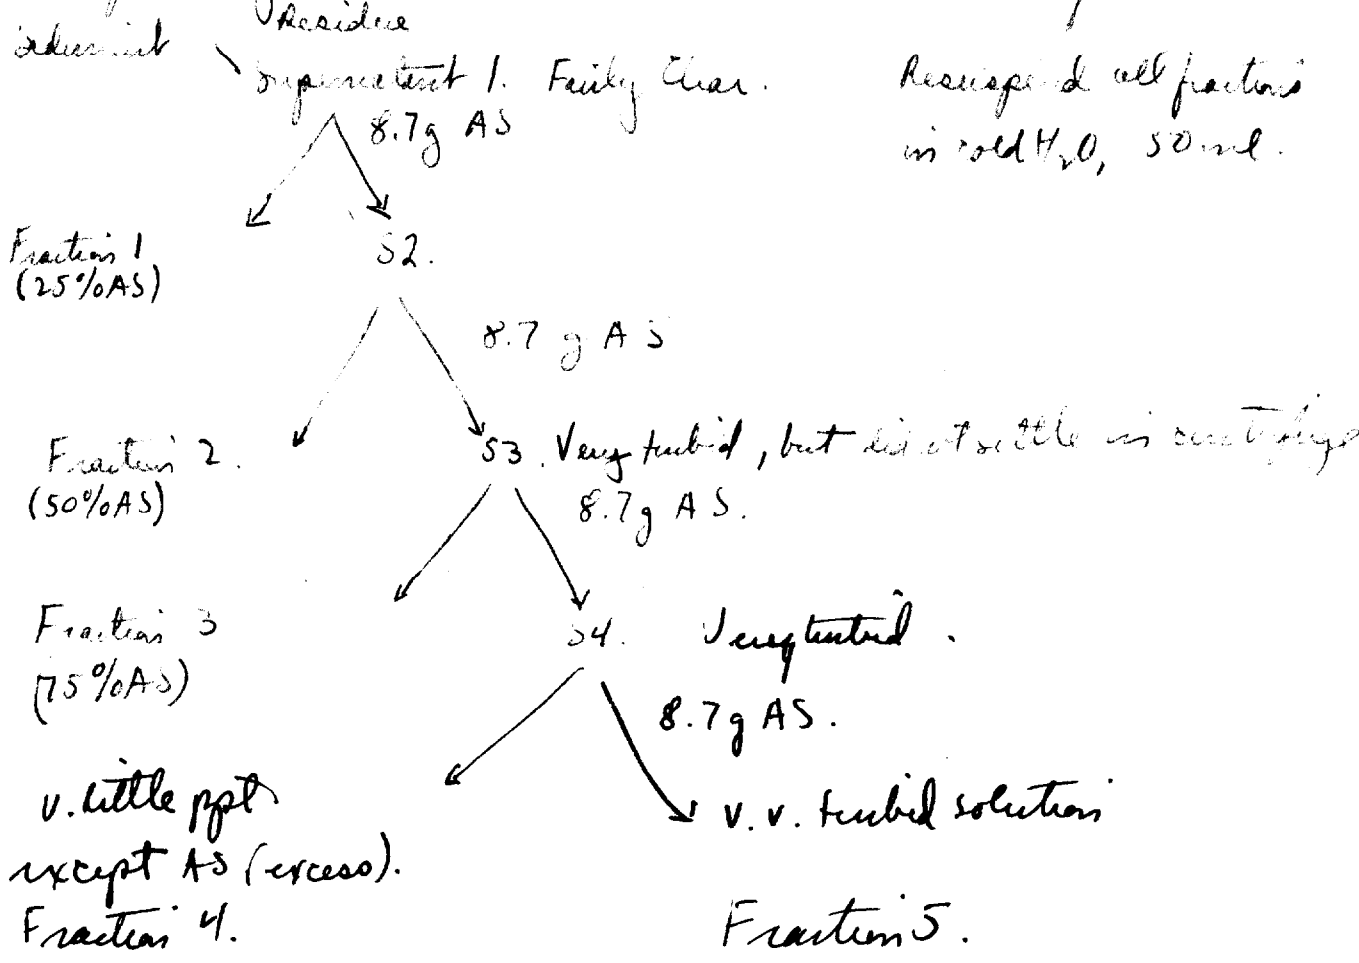 Residue
Sediment
Supernatent 1. Fairly Clear.
Resuspend all fractions
8.7g AS
in cold H2O, 50 ml.
Fraction 1
(25%AS)
S2.
8.7 g AS
Fraction 2.
(50%AS)
S3. Very turbid, but did not settle in centrifuge
8.7g AS.
Fraction 3
(75%AS)
S4. Very turbid.
8.7g AS.
v. little ppt
except AS (excess).
Fraction 4.
v. v. turbid solution
Fraction 5.